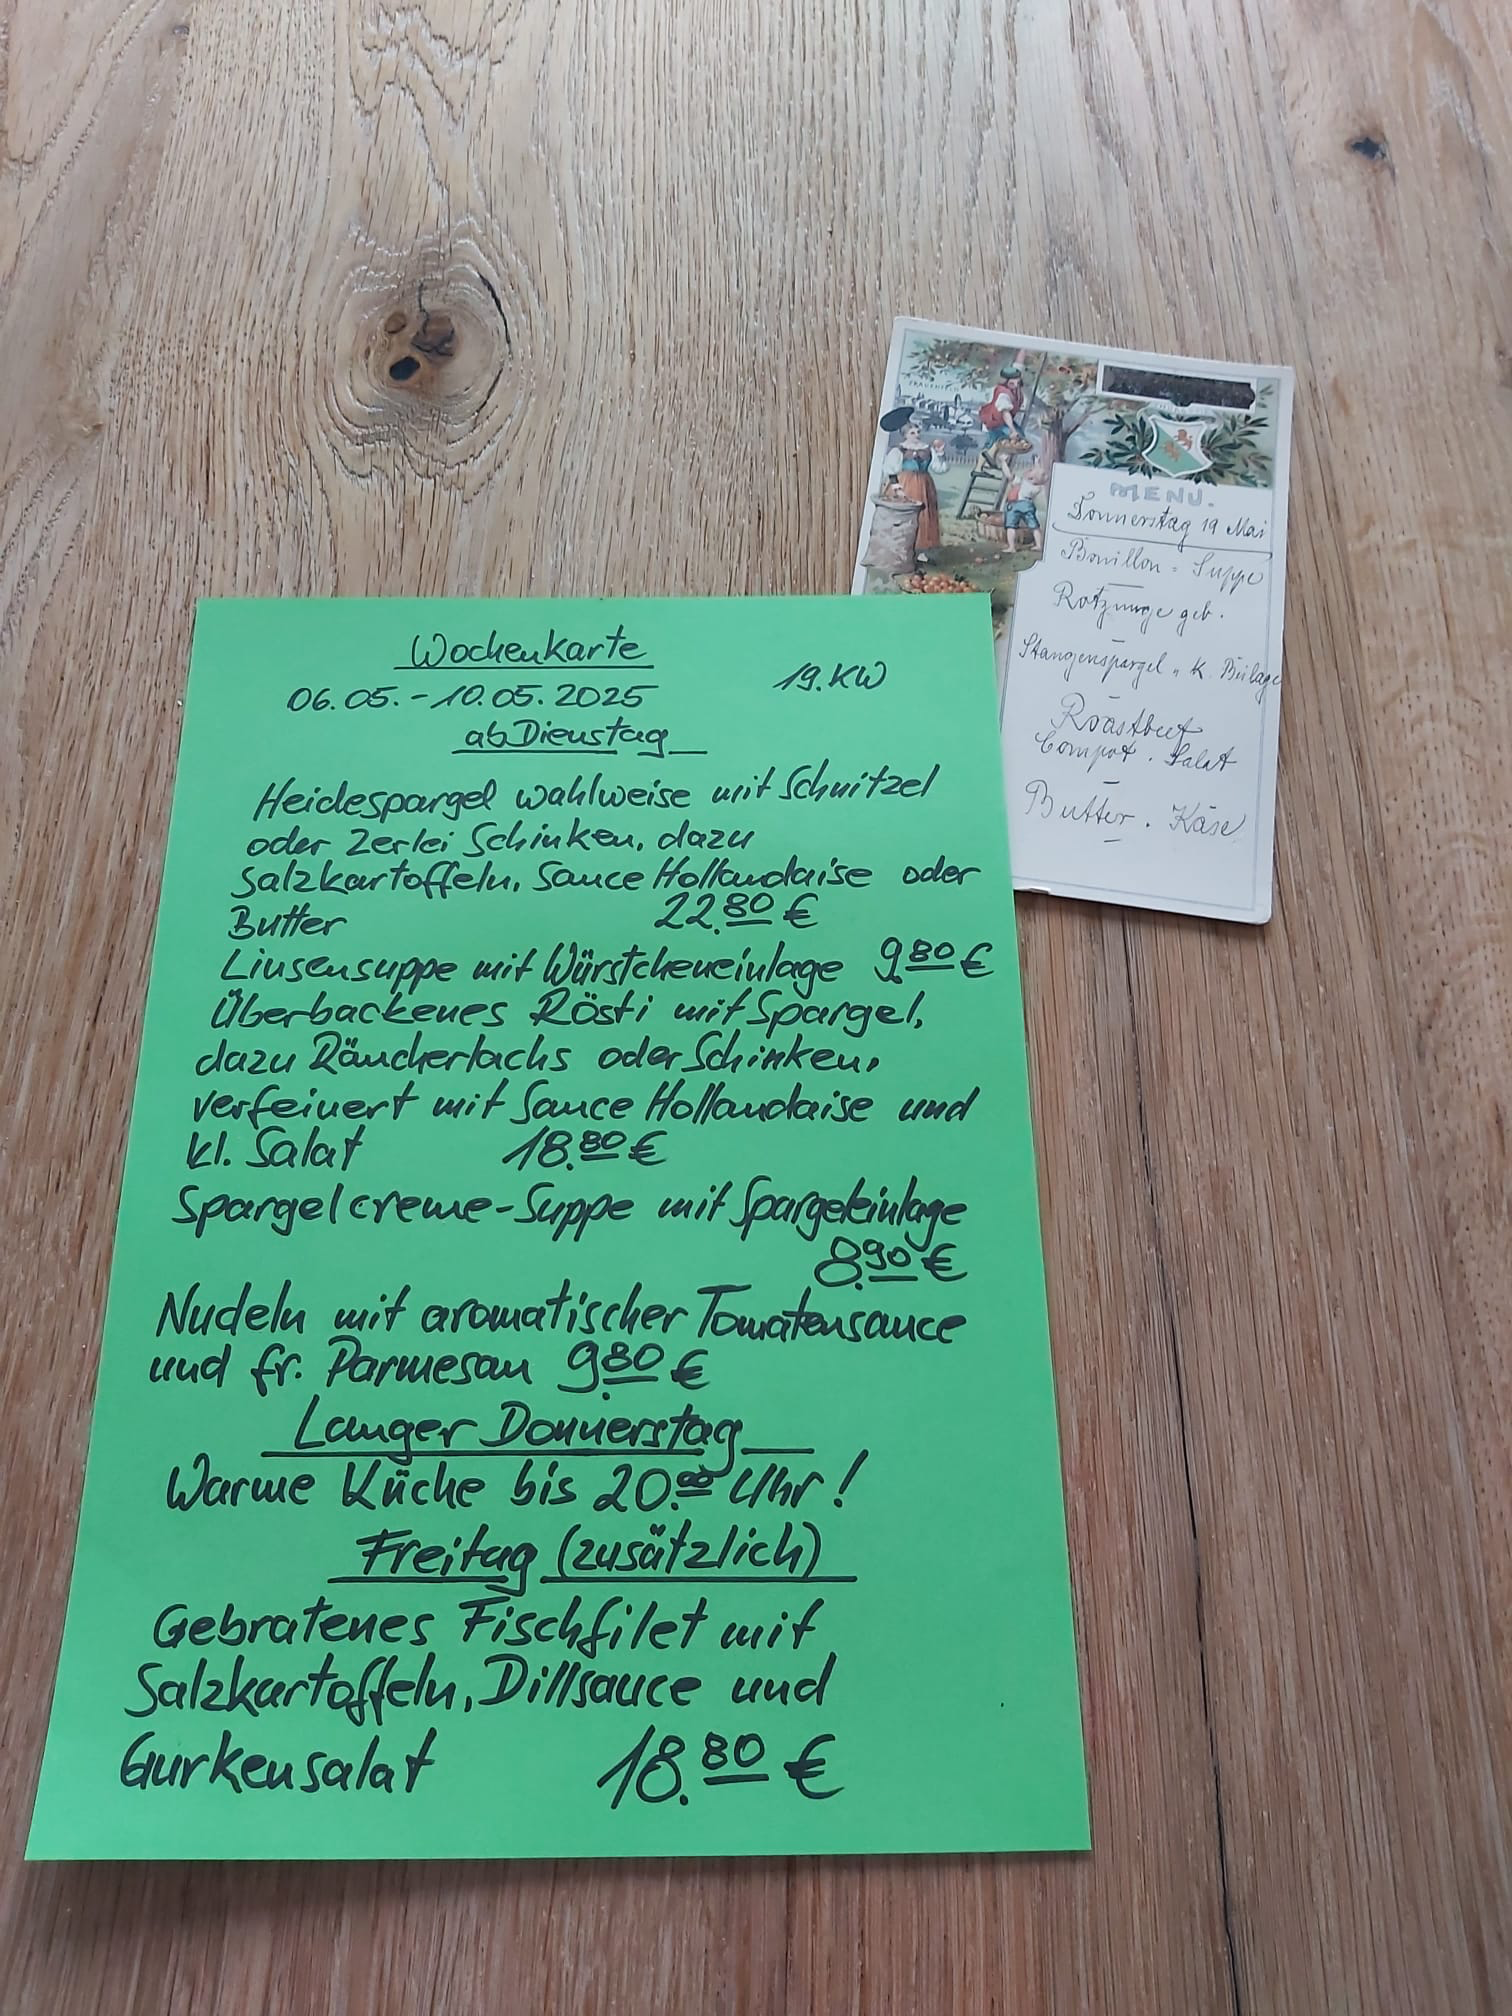 Wochenkarte
06.05.-10.05.2025 19.KW
ab Dienstag
Heidespargel wahlweise mit Schnitzel
oder 2erlei Schinken, dazu
Salzkartoffeln, Sauce Hollandaise oder
Butter 22.80 €
Linsensuppe mit Würstcheneinlage 9.80 €
Überbackenes Rösti mit Spargel,
dazu Räucherlachs oder Schinken,
verfeinert mit Sauce Hollandaise und
kl. Salat 18.80 €
Spargelcreme-Suppe mit Spargeleinlage
8.90 €
Nudeln mit aromatischer Tomatensauce
und fr. Parmesan 9.80 €
Langer Donnerstag
Warme Küche bis 20.00 Uhr!
Freitag (zusätzlich)
Gebratenes Fischfilet mit
Salzkartoffeln, Dillsauce und
Gurkensalat 18.80 €
MENU.
Donnerstag 19 Mai
Bouillon = Suppe
Rotzunge geb.
Stangenspargel u. k. Beilage
Roastbeef
Compot. Salat
Butter. Käse